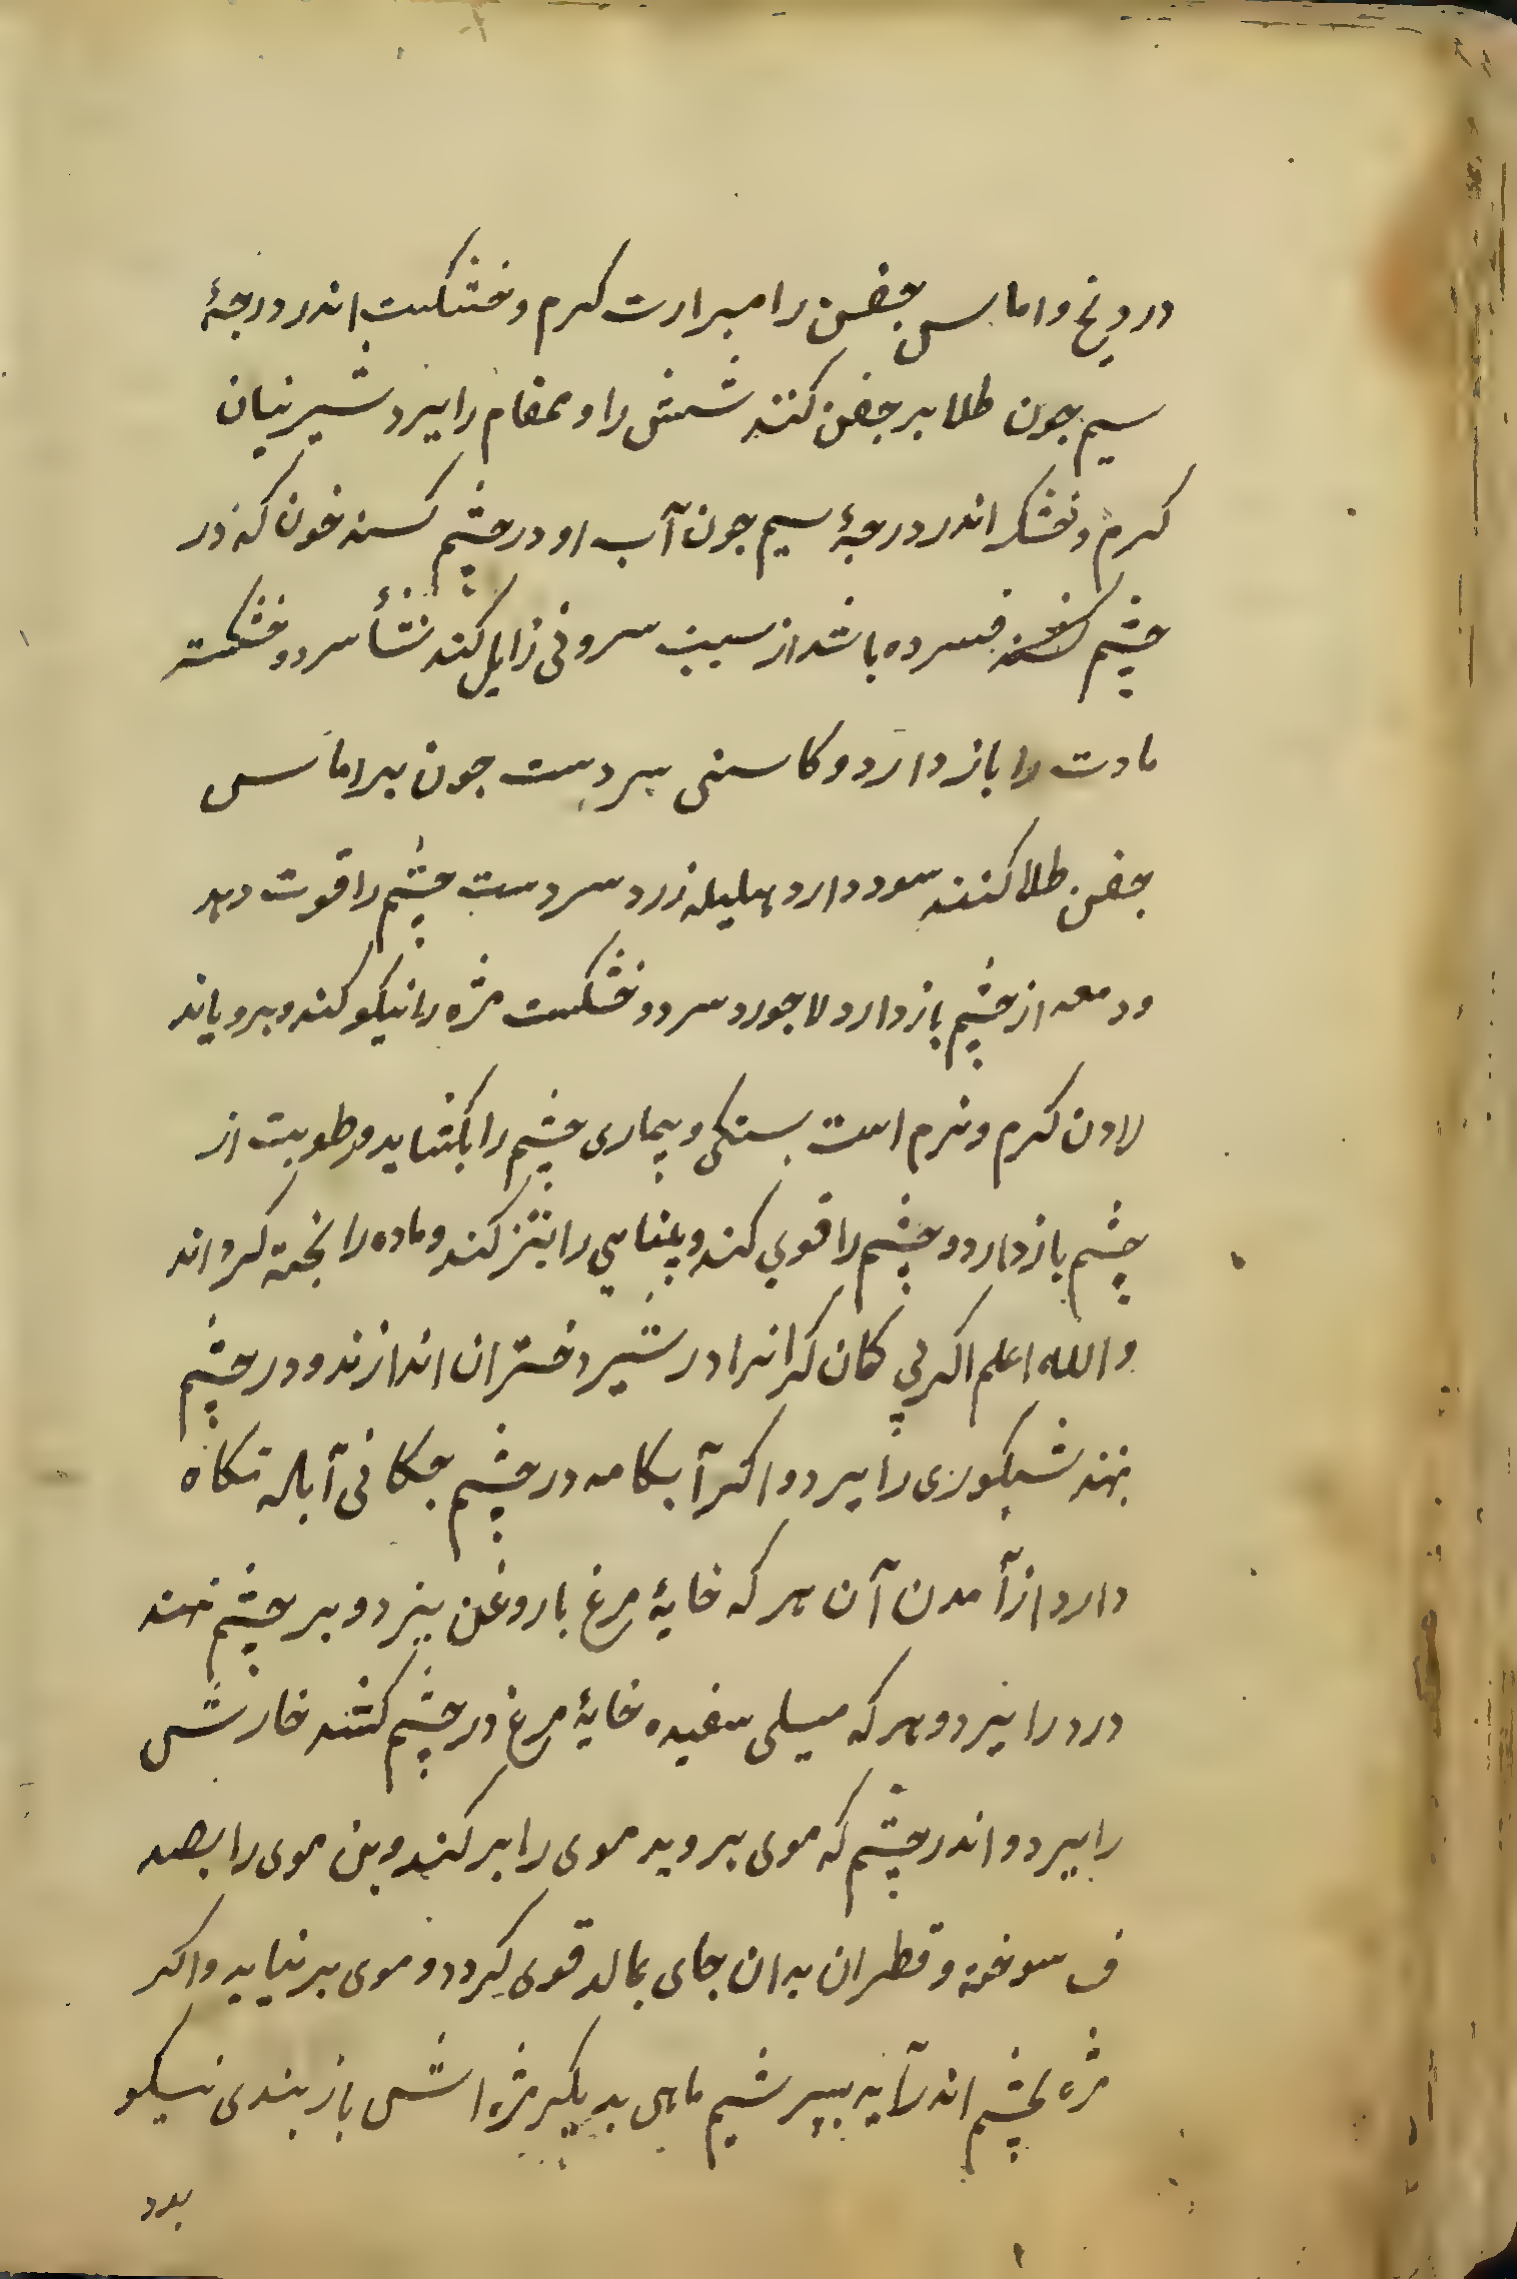 درد و اماس جفن را مرارت کرم و خشکست اندر درجهٔ
سیم چون طلا بر جفن کنند شپش را و قمقام را ببرد شیر تیان
کرم و خشک اندر درجهٔ سیم چون آب او در چشم کسند خون که در
چشم فسرده باشد از سبب سروفی زایل کند نشأ سرد و خشکست
مادت را باز دارد و کاسنی سردست چون بر اماس
جفن طلا کنند سود دارد هلیله زرد سردست چشم را قوت دهد
و دمعه از چشم باز دارد لاجورد سرد و خشکست مژه را نیکو کند و برویاند
لادن کرم و نرم است بستکی و بیماری چشم را بکشاید و رطوبت از
چشم باز دارد و چشم را قوی کند و بینایی را تیز کند و ماده را پخته کرداند
و الله اعلم اکر پی کان کرانرا در شیر دختران اندازند و در چشم
نهند شبکوری را ببرد و اکر آبکامه در چشم چکانی آبله نکاه
دارد از آمدن آن هر که خایهٔ مرغ با روغن بپزد و بر چشم نهند
درد را ببرد و هر که میلی سفیده خایهٔ مرغ در چشم کشند خارش
را ببرد و اندر چشم که موی بروید موی را بر کنند و بن موی را بصد
ف سوخته و قطران بدان جای بمالد قوی کردد و موی برنیاید و اکر
مژه بچشم اندر آید بسریشم ماهی بدیکر مژه اش باز بندی نیکو
بود